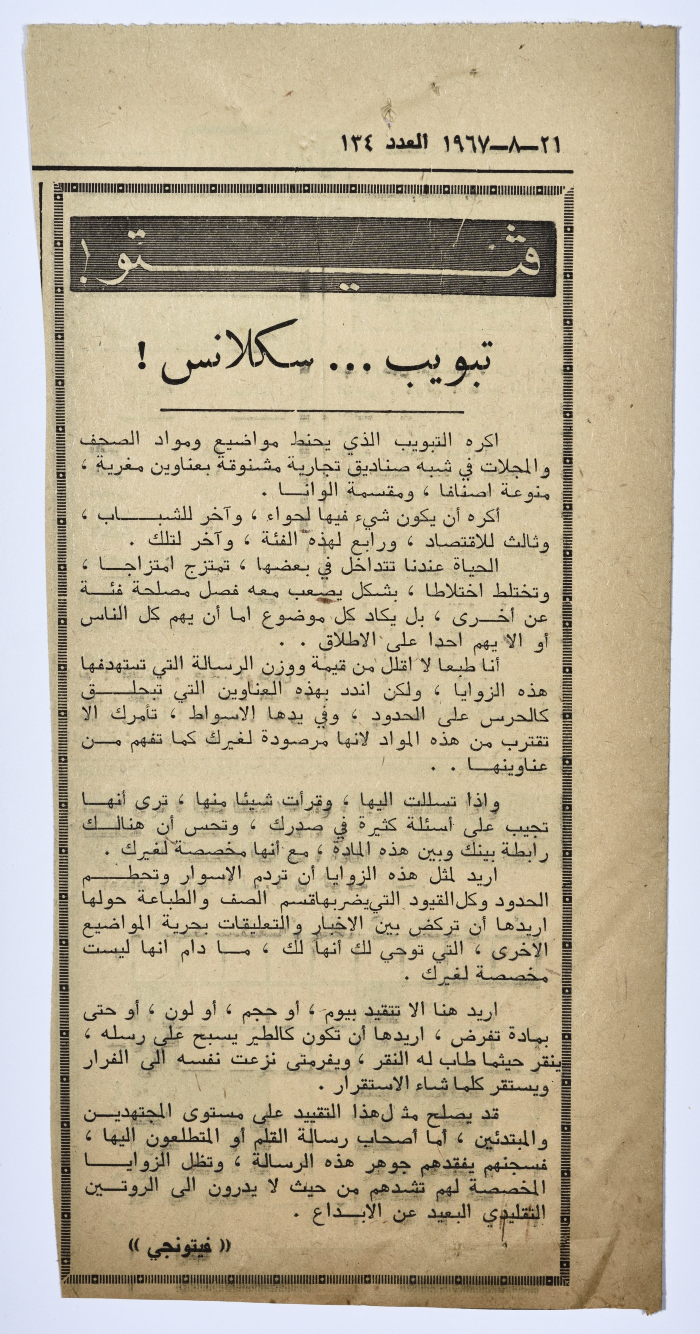 ٢١-٨-١٩٦٧ العدد ١٣٤
ڤيتو!
تبويب ... سكلانس !
اكره التبويب الذي يحنط مواضيع ومواد الصحف
والمجلات في شبه صناديق تجارية مشنوقة بعناوين مغرية ،
منوعة اصنافا ، ومقسمة الوانا .
أكره أن يكون شيء فيها لحواء ، وآخر للشباب ،
وثالث للاقتصاد ، ورابع لهذه الفئة ، وآخر لتلك .
الحياة عندنا تتداخل في بعضها ، تمتزج امتزاجا ،
وتختلط اختلاطا ، بشكل يصعب معه فصل مصلحة فئة
عن أخرى ، بل يكاد كل موضوع اما أن يهم كل الناس
أو الا يهم احدا على الاطلاق . .
أنا طبعا لا اقلل من قيمة ووزن الرسالة التي تستهدفها
هذه الزوايا ، ولكن اندد بهذه العناوين التي تبحلق
كالحرس على الحدود ، وفي يدها الاسواط ، تأمرك الا
تقترب من هذه المواد لانها مرصودة لغيرك كما تفهم من
عناوينها . .
واذا تسللت اليها ، وقرأت شيئا منها ، ترى أنها
تجيب على أسئلة كثيرة في صدرك ، وتحس أن هنالك
رابطة بينك وبين هذه المادة ، مع أنها مخصصة لغيرك .
اريد لمثل هذه الزوايا أن تردم الاسوار وتحطم
الحدود وكل القيود التي يضربها قسم الصف والطباعة حولها
اريدها أن تركض بين الاخبار والتعليقات بحرية المواضيع
الاخرى ، التي توحي لك أنها لك ، ما دام انها ليست
مخصصة لغيرك .
اريد هنا الا تتقيد بيوم ، أو حجم ، أو لون ، أو حتى
بمادة تفرض ، اريدها أن تكون كالطير يسبح على رسله ،
ينقر حيثما طاب له النقر ، ويفرمتى نزعت نفسه الى الفرار
ويستقر كلما شاء الاستقرار .
قد يصلح مثل هذا التقييد على مستوى المجتهدين
والمبتدئين ، أما أصحاب رسالة القلم أو المتطلعون اليها ،
فسجنهم يفقدهم جوهر هذه الرسالة ، وتظل الزوايا
المخصصة لهم تشدهم من حيث لا يدرون الى الروتين
التقليدي البعيد عن الابداع .
(( فيتونجي ))